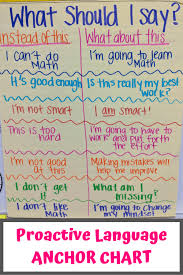 What Should I say?
Instead of this  What about this
I can't do Math  I'm going to learn Math
It's good enough  Is this really my best work?
I'm not smart  I am smart!
This is too hard  I'm going to have to work and put forth the effort
I'm not good at this  Making mistakes will help me improve
I don't get it  What am I missing?
I don't like Math  I'm going to change my mindset
Proactive Language
ANCHOR CHART